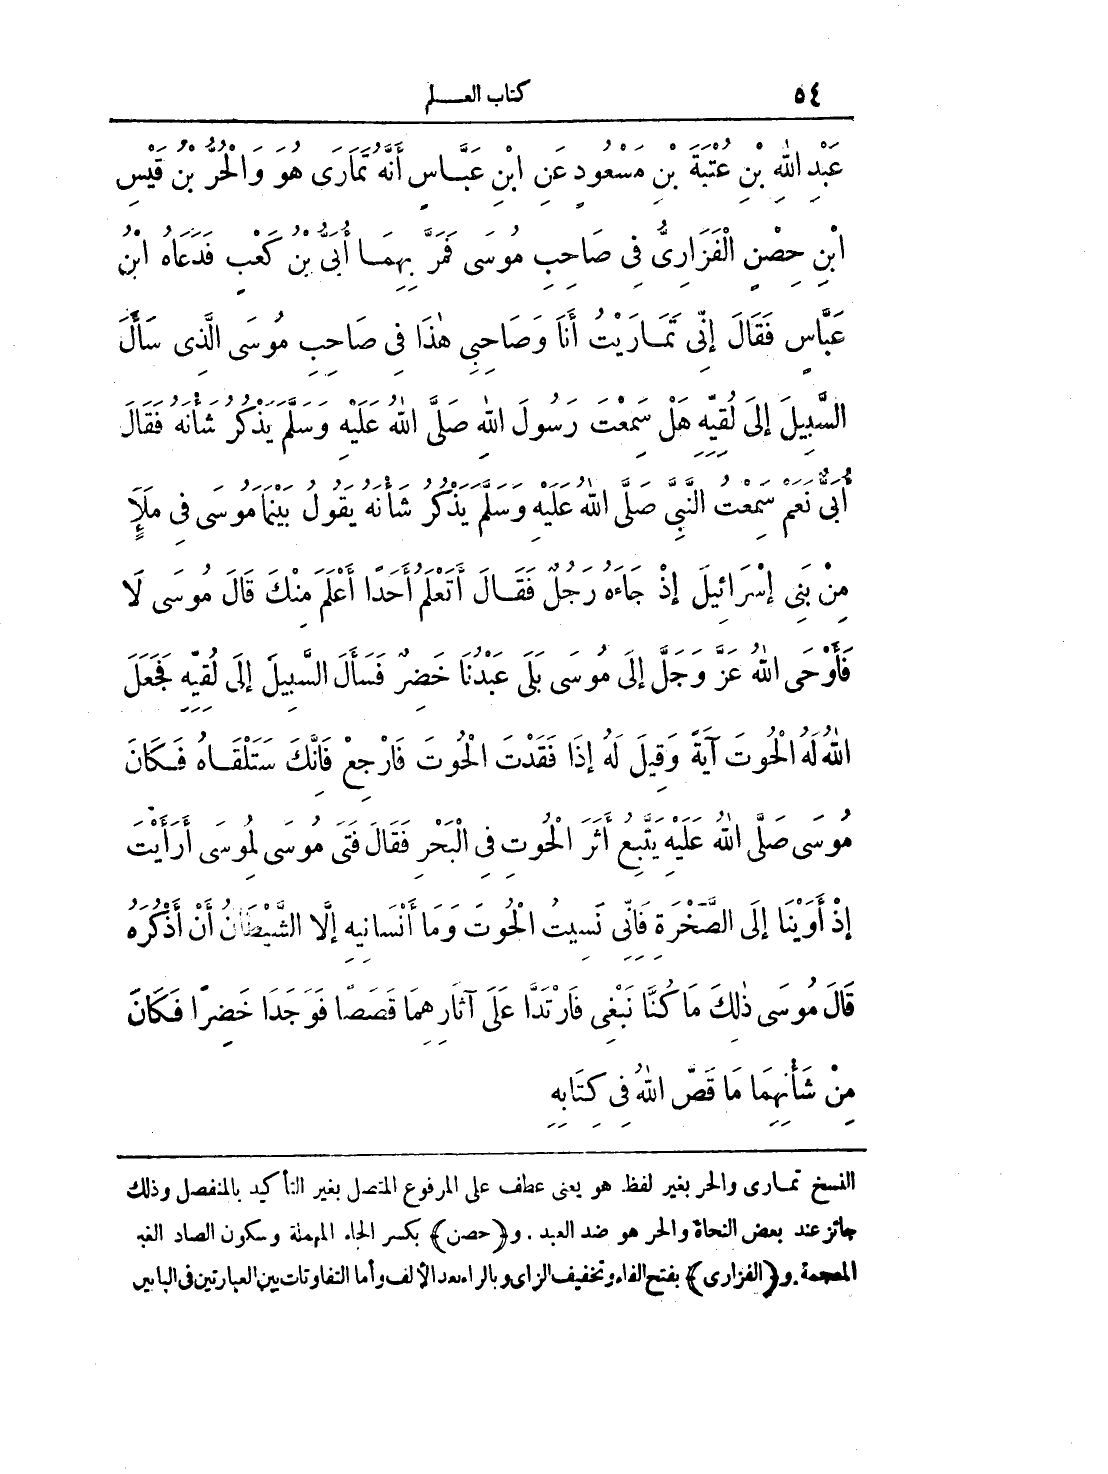 ٥٤ كتاب العـــلم
عَبْدِ اللهِ بْنِ عُتْبَةَ بْنِ مَسْعُودٍ عَنِ ابْنِ عَبَّـاسٍ أَنَّهُ تَمَارَى هُوَ وَالْحُرُّ بْنُ قَيْسِ
ابْنِ حِصْنٍ الْفَزَارِىُّ فِى صَاحِبِ مُوسَى فَمَرَّ بِهِمَـا أُبَىُّ بْنُ كَعْبٍ فَدَعَاهُ ابْنُ
عَبَّاسٍ فَقَالَ إِنِّى تَمَـارَيْتُ أَنَا وَصَاحِبِى هٰذَا فِى صَاحِبِ مُوسَى الَّذِى سَأَلَ
السَّبِيلَ إِلَى لُقِيِّهِ هَلْ سَمِعْتَ رَسُولَ اللهِ صَلَّى اللهُ عَلَيْهِ وَسَلَّمَ يَذْكُرُ شَأْنَهُ فَقَالَ
أُبَىٌّ نَعَمْ سَمِعْتُ النَّبِىَّ صَلَّى اللهُ عَلَيْهِ وَسَلَّمَ يَذْكُرُ شَأْنَهُ يَقُولُ بَيْنَمَا مُوسَى فِى مَلَإٍ
مِنْ بَنِى إِسْرَائِيلَ إِذْ جَاءَهُ رَجُلٌ فَقَـالَ أَتَعْلَمُ أَحَدًا أَعْلَمَ مِنْكَ قَالَ مُوسَى لَا
فَأَوْحَى اللهُ عَزَّ وَجَلَّ إِلَى مُوسَى بَلَى عَبْدُنَا خَضِرٌ فَسَأَلَ السَّبِيلَ إِلَى لُقِيِّهِ فَجَعَلَ
اللهُ لَهُ الْحُوتَ آيَةً وَقِيلَ لَهُ إِذَا فَقَدْتَ الْحُوتَ فَارْجِعْ فَإِنَّكَ سَتَلْقَـاهُ فَـكَانَ
مُوسَى صَلَّى اللهُ عَلَيْهِ يَتَّبِعُ أَثَرَ الْحُوتِ فِى الْبَحْرِ فَقَالَ فَتَى مُوسَى لِمُوسَى أَرَأَيْتَ
إِذْ أَوَيْنَا إِلَى الصَّخْرَةِ فَإِنِّى نَسِيتُ الْحُوتَ وَمَا أَنْسَانِيهِ إِلَّا الشَّيْطَانُ أَنْ أَذْكُرَهُ
قَالَ مُوسَى ذٰلِكَ مَا كُنَّا نَبْغِى فَارْتَدَّا عَلَى آثَارِهِمَا قَصَصًا فَوَجَدَا خَضِرًا فَـكَانَ
مِنْ شَأْنِهِمَا مَا قَصَّ اللهُ فِى كِتَابِهِ
النسخ تمـارى والحر بغير لفظ هو يعنى عطف على المرفوع المتصل بغير التأكيد بالمنفصل وذلك
جائز عند بعض النحاة والحر هو ضد العبد . و﴿حصن﴾ بكسر الحاء المهملة وسكون الصاد الغير
المعجمة. و﴿الفزارى﴾ بفتح الفاء وتخفيف الزاى وبالراء بعد الألف وأما التفاوتات بين العبارتين فى البابين